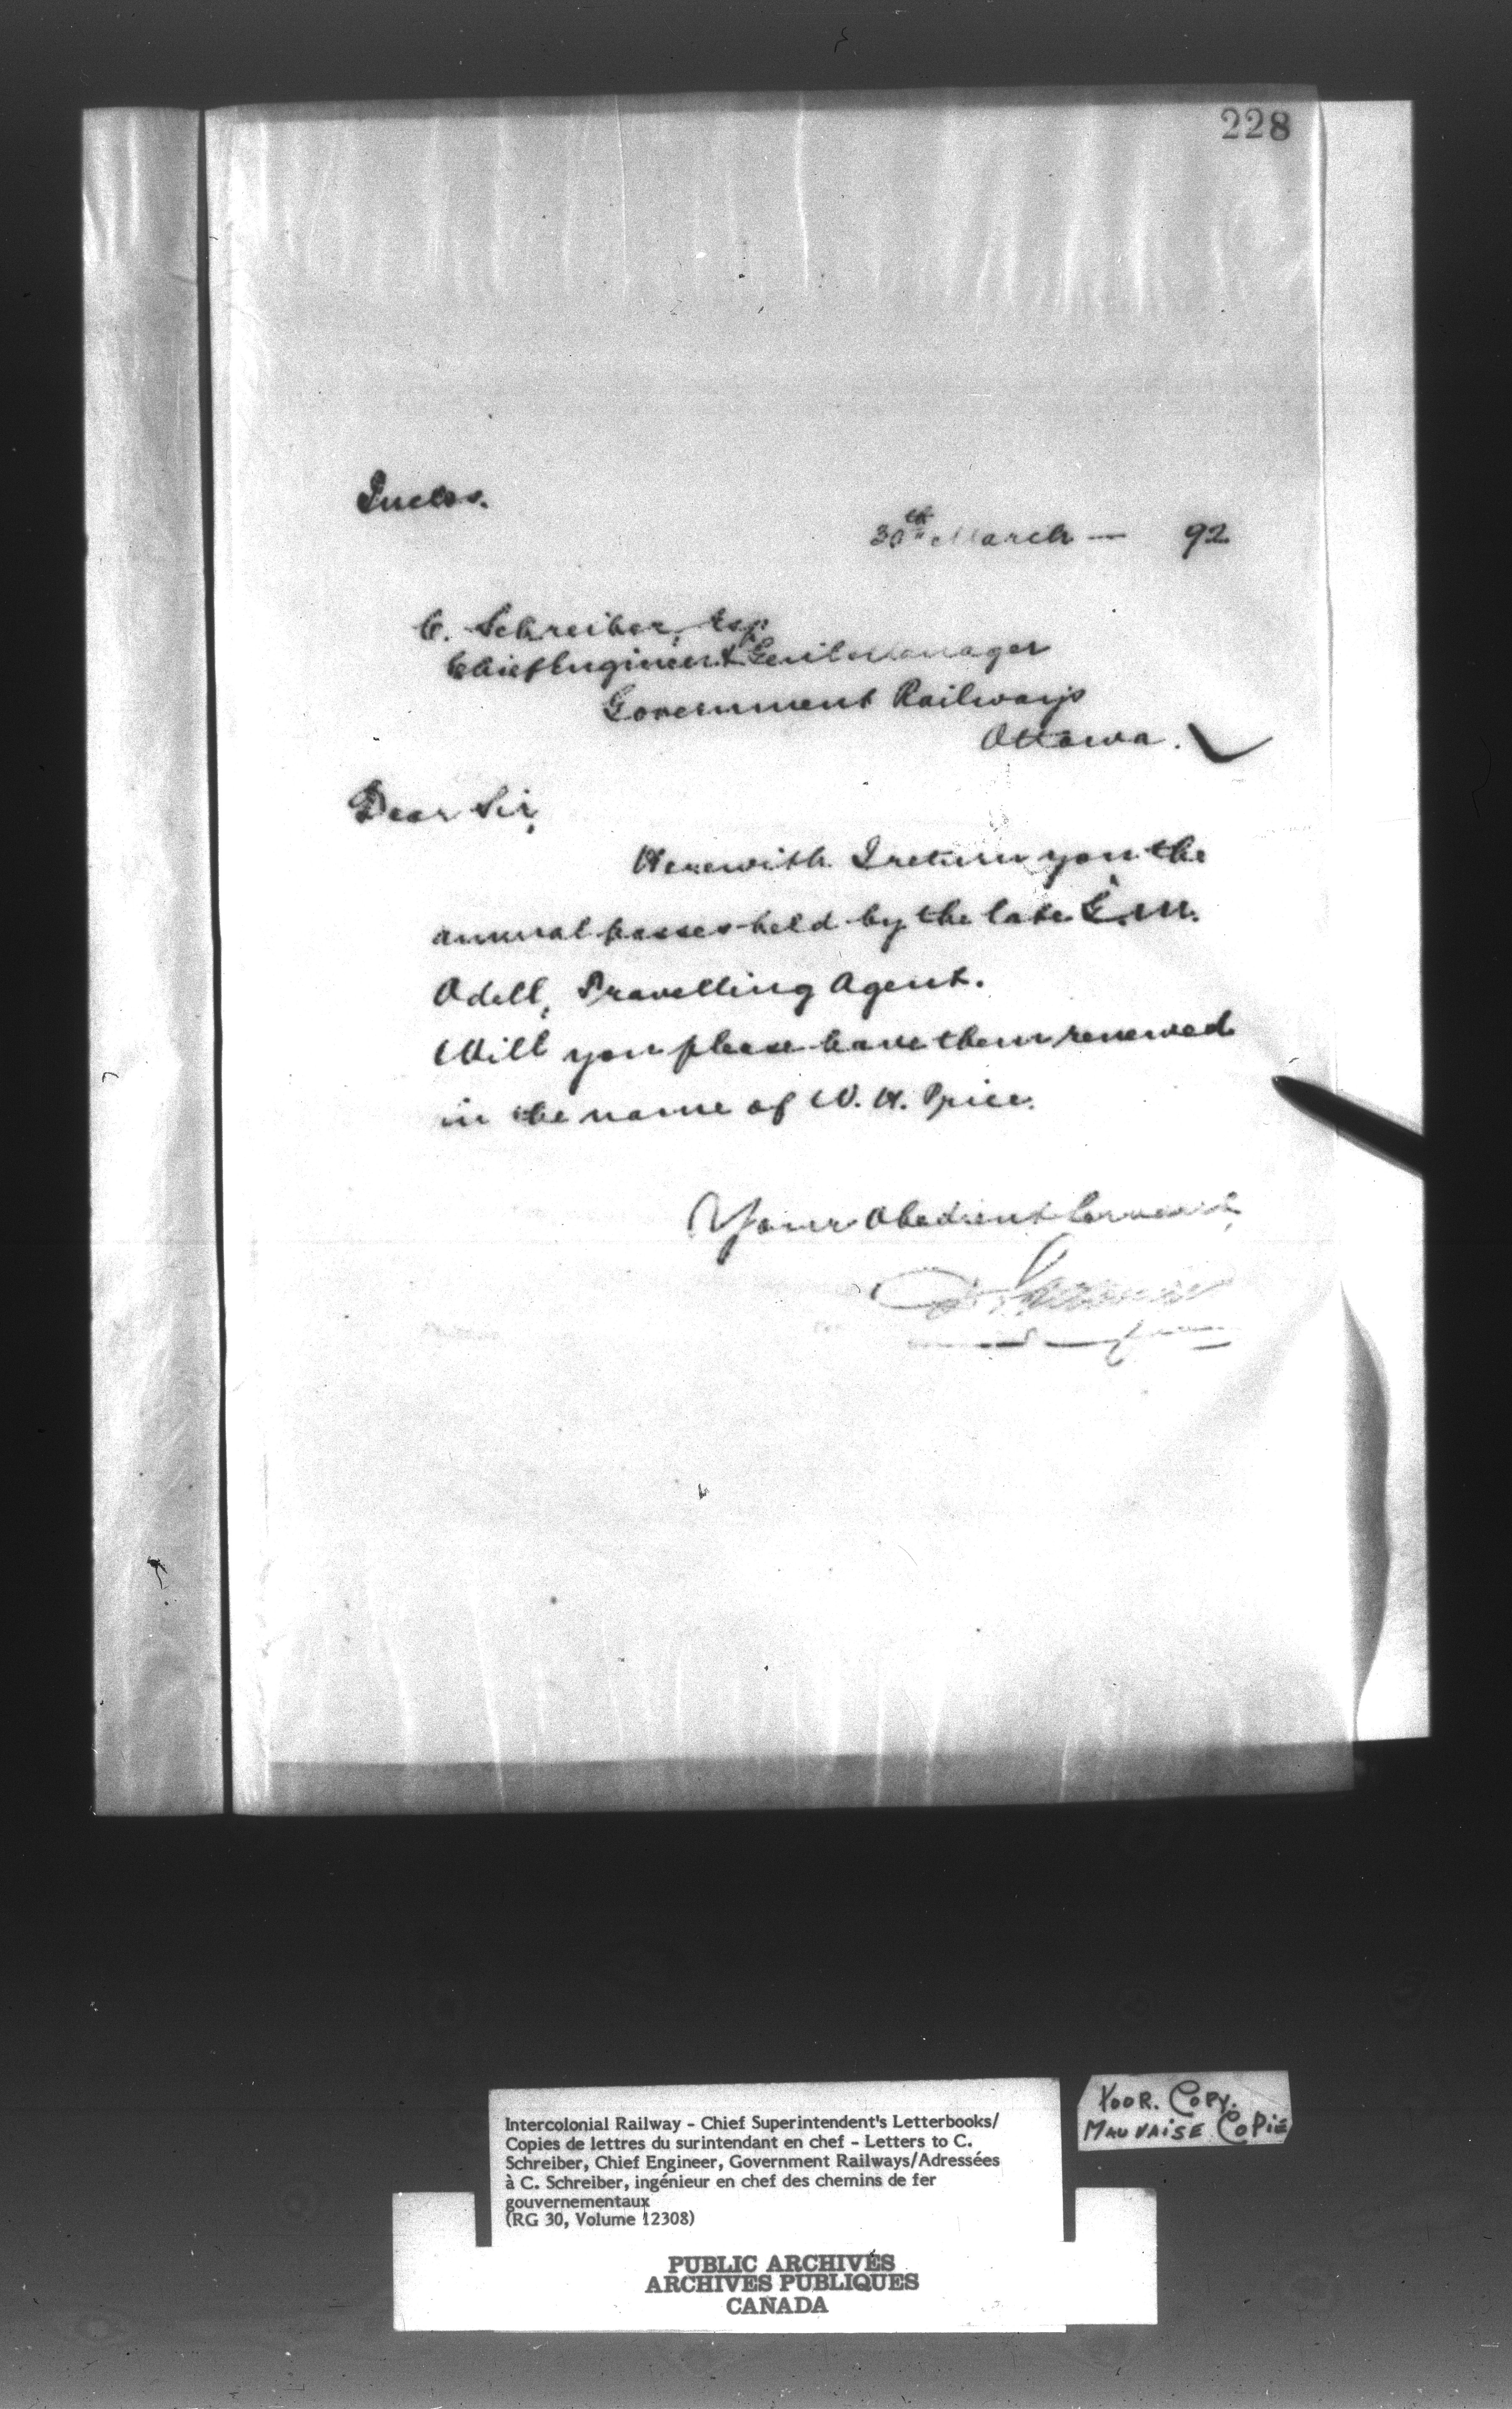 228
Inclos.
30th March — 92
C. Schreiber, Esq
Chief Engineer & Genl Manager
Government Railways
Ottawa.
Dear Sir,
Herewith I return you the
annual passes held by the late G. M.
Odell, Travelling Agent.
Will you please have them renewed
in the name of W. H. Price.
Your Obedient Servant,
Intercolonial Railway - Chief Superintendent's Letterbooks/
Copies de lettres du surintendant en chef - Letters to C.
Schreiber, Chief Engineer, Government Railways/Adressées
à C. Schreiber, ingénieur en chef des chemins de fer
gouvernementaux
(RG 30, Volume 12308)
POOR. COPY.
MAUVAISE COPIE
PUBLIC ARCHIVES
ARCHIVES PUBLIQUES
CANADA